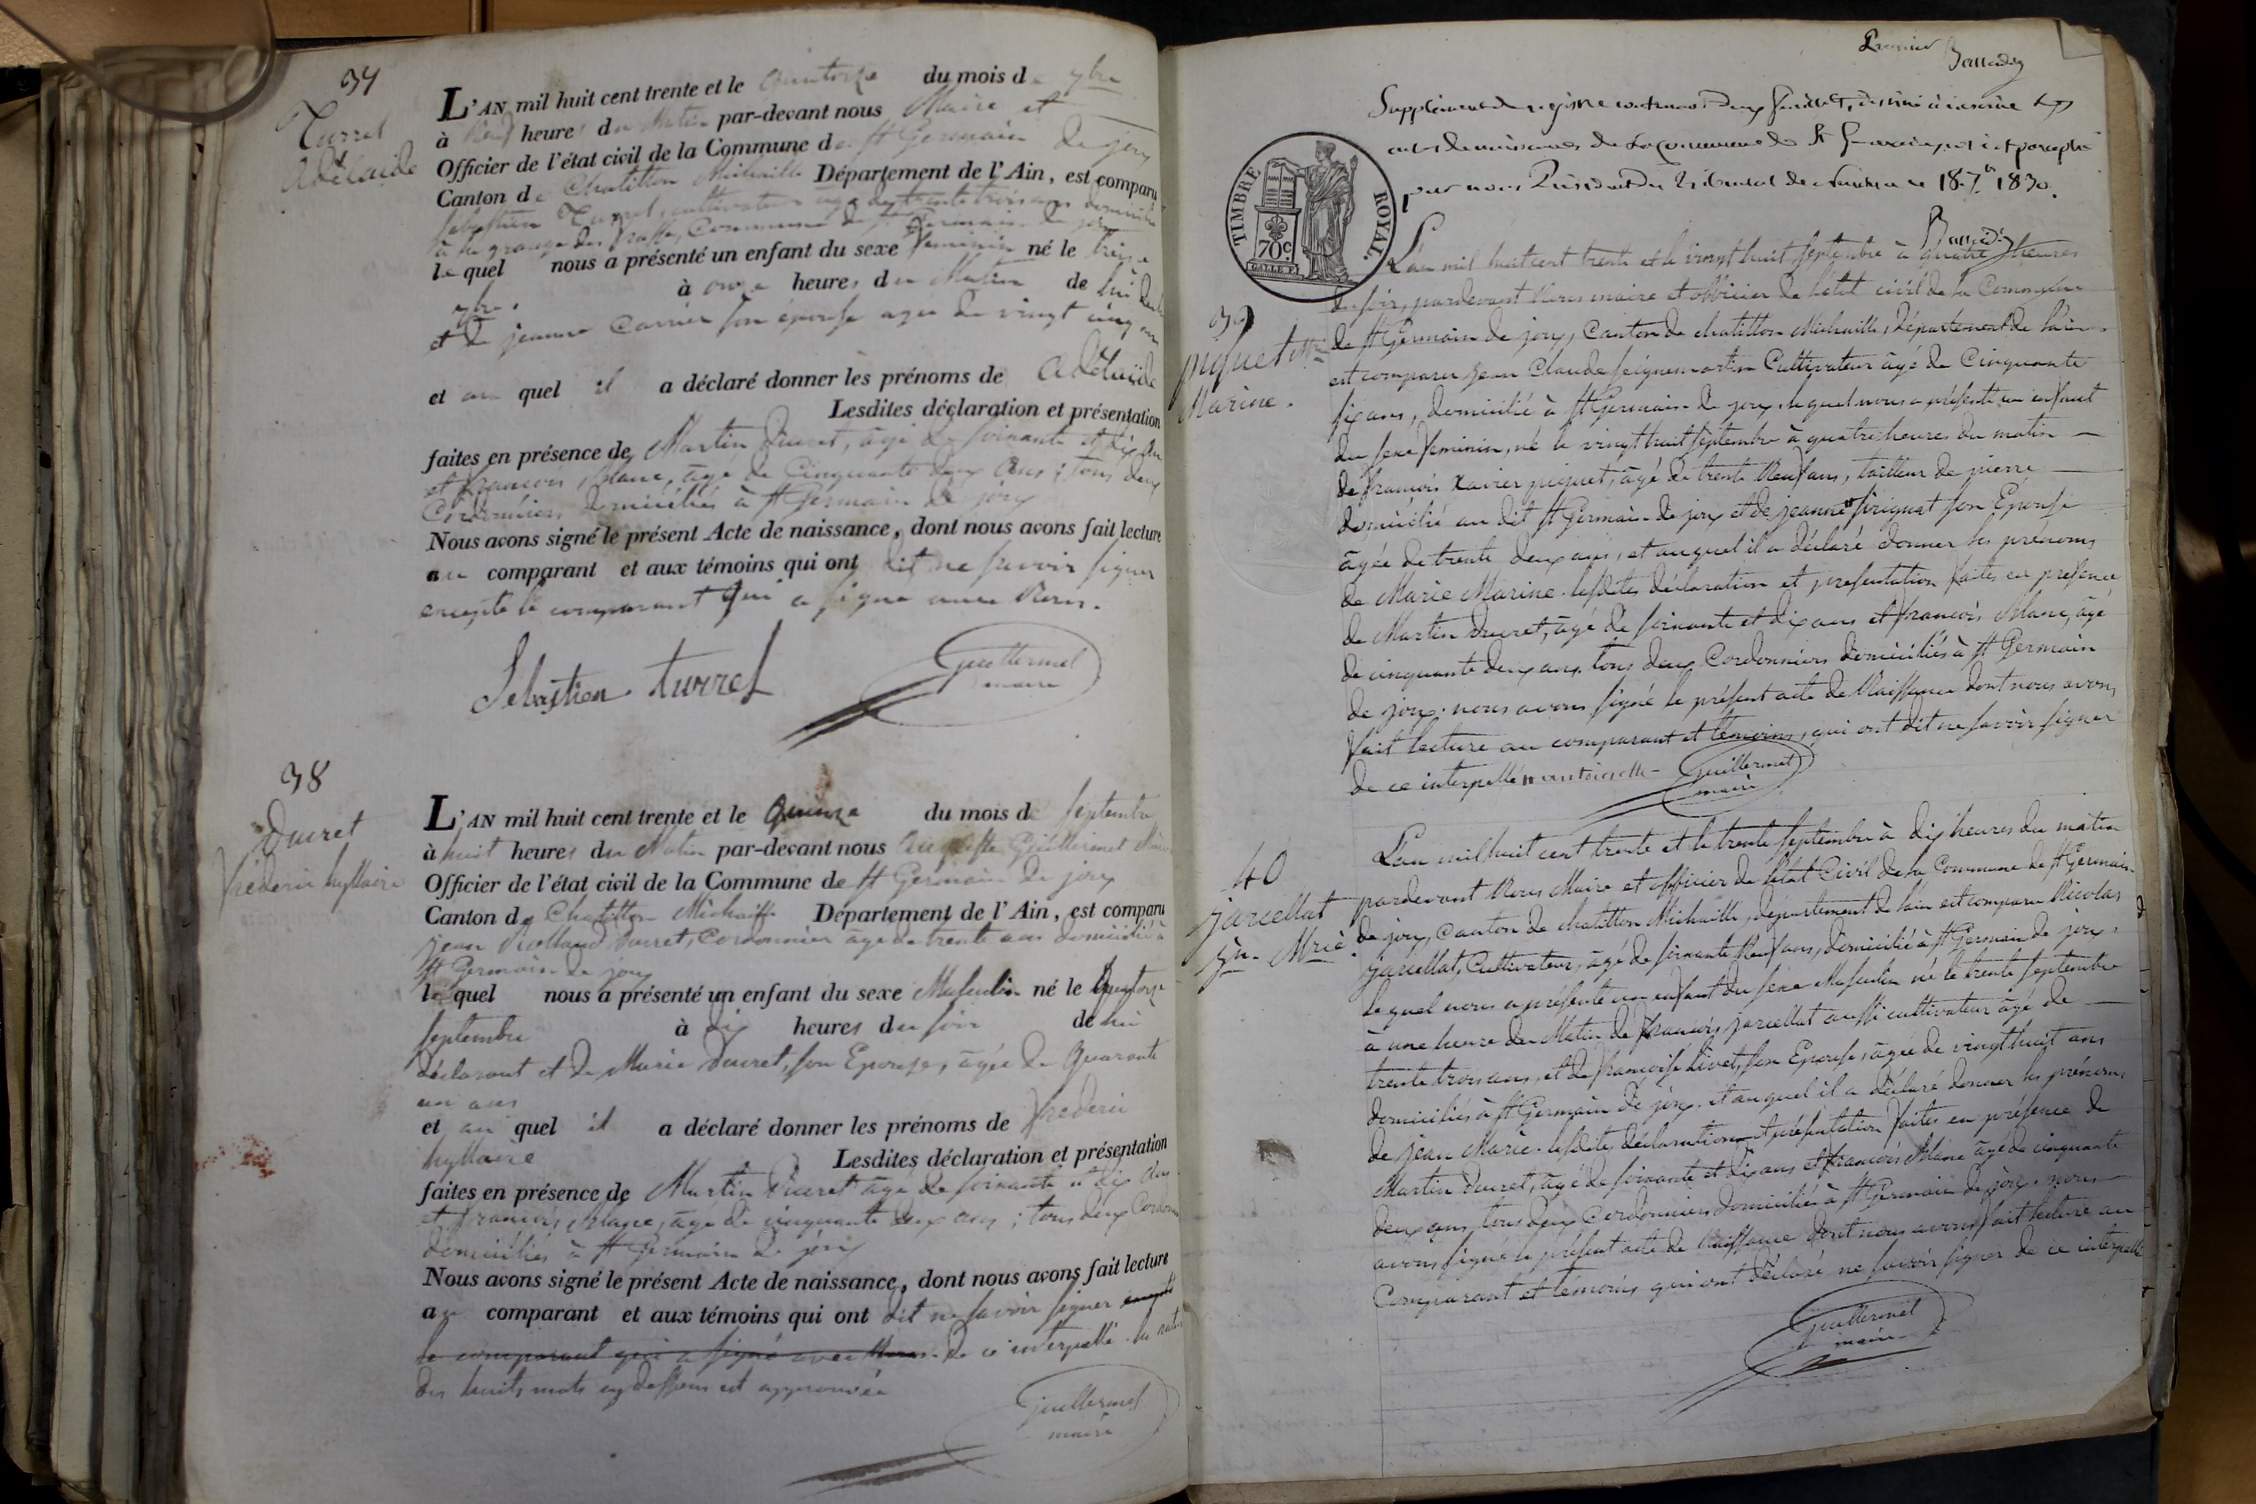 37
Turrel
Adélaide
L'AN mil huit cent trente et le quatorze du mois de 7bre
à heures du Matin par-devant nous Maire et
Officier de l'état civil de la Commune de St Germain de joux
Canton de Chatillon Michaille Département de l'Ain, est comparu
Sébastien Turrel, cultivateur agé de trente trois ans domicilié
à la grange des Commune de St Germain de joux
lequel nous a présenté un enfant du sexe feminin né le treize
7bre à onze heures du Matin de lui
et de jeanne Carrier son épouse agée de vingt cinq ans
et au quel il a déclaré donner les prénoms de Adélaïde
Lesdites déclaration et présentation
faites en présence de Martin Ducret, âgé de soixante et dix ans
et françois Blanc, âgé de Cinquante deux ans ; tous deux
Cordonniers domiciliés à St Germain de joux
Nous avons signé le présent Acte de naissance, dont nous avons fait lecture
au comparant et aux témoins qui ont dit ne savoir signer
excepté le comparant qui a signé avec Nous.
Sebastien turrel
Guillermet
maire
38
Ducret
frederic hyllaire
L'AN mil huit cent trente et le Quinze du mois de Septembre
à huit heures du Matin par-devant nous Guillermet Maire
Officier de l'état civil de la Commune de St Germain de joux
Canton de Chatillon Michaille Département de l'Ain, est comparu
jean Ducret, Cordonnier âgé de trente ans domicilié à
St Germain de joux
lequel nous a présenté un enfant du sexe Masculin né le Quatorze
Septembre à dix heures du soir de lui
déclarant et de Marie Ducret, son Epouse, âgée de Quarante
un ans
et au quel il a déclaré donner les prénoms de frederic
hyllaire Lesdites déclaration et présentation
faites en présence de Martin Ducret âgé de soixante et dix ans
et françois Blanc, âgé de cinquante deux ans ; tous deux Cordonniers
domiciliés à St Germain de joux
Nous avons signé le présent Acte de naissance, dont nous avons fait lecture
au comparant et aux témoins qui ont dit ne savoir signer excepté
le comparant qui a signé avec Nous. de ce interpellé. la
des huits mots cy dessus est approuvée
Guillermet
maire
Premier
Supplément de registre contenant deux feuillets, destiné à inscrire les
actes de naissances de la commune de St Germain
par nous Président du Tribunal de Nantua ce 18 7bre 1830.
TIMBRE ROYAL.
70c
39
piguet Mie
Marine.
L'an mil huit cent trente et le vingt huit Septembre à quatre heures
du soir, pardevant Nous maire et officier de l'etat civil de la Commune
de St Germain de joux, Canton de chatillon Michaille, département de l'ain
est comparu jean Claude Seignemartin Cultivateur âgé de Cinquante
six ans, domicilié à St Germain de joux, lequel nous a présenté un enfant
du sexe feminin, né le vingt huit Septembre à quatre heures du matin
de françois Xavier piquet, âgé de trente Neuf ans, tailleur de pierre
domicilié au dit St Germain de joux et de jeanne Son Epouse
âgée de trente deux ans, et auquel il a déclaré donner les prénoms
de Marie Marine. lesdites déclaration et présentation faites en présence
de Martin Ducret, âgé de soixante et dix ans et françois Blanc, âgé
de cinquante deux ans, tous deux Cordonniers domiciliés à St Germain
de joux. nous avons signé le présent acte de Naissance dont nous avons
fait lecture au comparant et témoins, qui ont dit ne savoir signer
de ce interpellé antoinette
Guillermet
maire
40
jarcellat
jn. Mrie.
L'an mil huit cent trente et le trente Septembre à dix heures du matin
pardevant Nous Maire et officier de l'état Civil de la Commune de St Germain
de joux, Canton de chatillon Michaille, département de l'ain est comparu Nicolas
jarcellat, Cultivateur, âgé de soixante Neuf ans, domicilié à St Germain de joux.
lequel nous a présenté un enfant du sexe Masculin né le trente Septembre
à une heure du Matin de françois jarcellat aussi cultivateur âgé de
trente trois ans, et de françoise Livet, son Epouse, âgée de vingt huit ans
domiciliés à St Germain de joux. et auquel il a déclaré donner les prénoms
de jean Marie. lesdites déclaration et présentation faites en présence de
Martin Ducret, âgé de soixante et dix ans et françois Blanc âgé de cinquante
deux ans, tous deux Cordonniers domiciliés à St Germain de joux. nous
avons signé le présent acte de Naissance dont nous avons fait lecture au
Comparant et témoins qui ont déclaré ne savoir signer de ce interpellé
Guillermet
maire